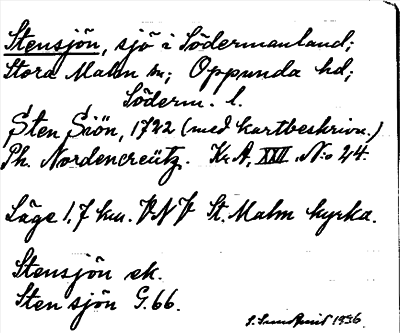 Stensjön, sjö i Södermanland;
Stora Malm sn; Oppunda hd;
Söderm. l.
Sten Siön, 1722 (med kartbeskrivn.)
Ph. Nordencreütz. Kr. A, XXII. No: 24.
Läge 1,7 km. VNV St. Malm kyrka.
Stensjön ek.
Sten sjön G. 66.
S. Sundqvist 1936.